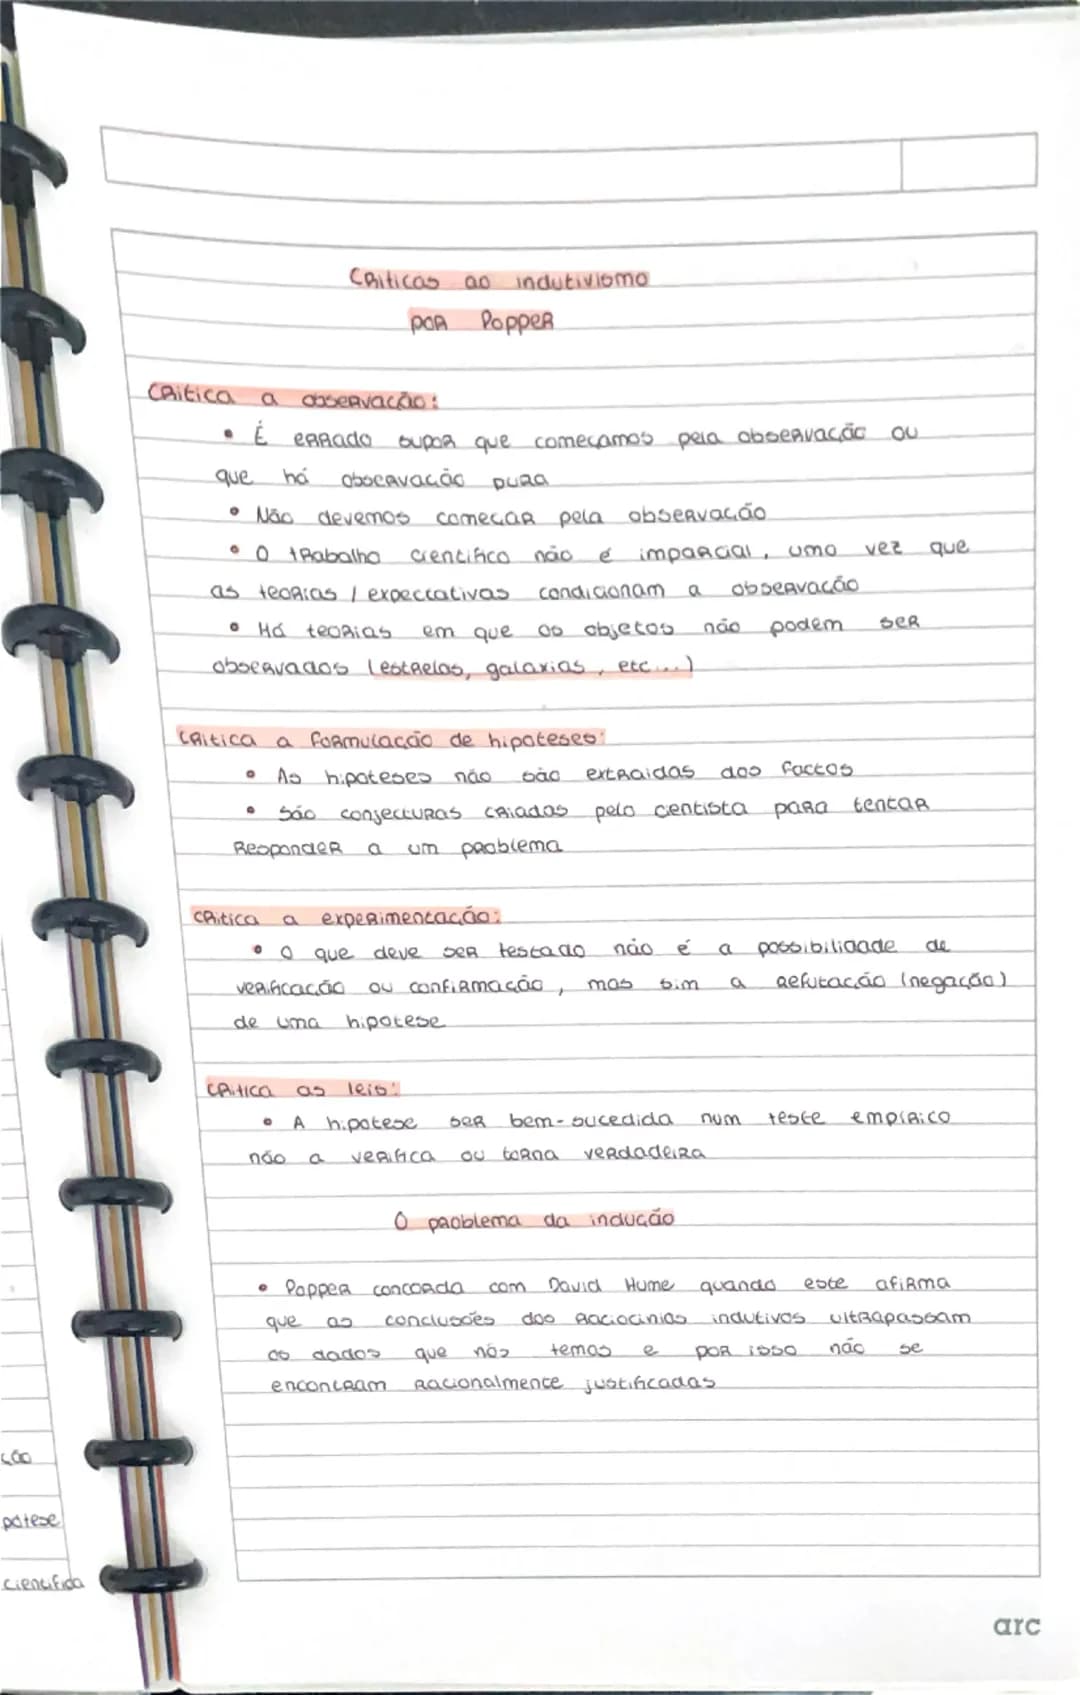 Criticas ao indutivismo
por Popper
Critica a observação:
• É errado supor que começamos pela observação ou
que há observação pura
• Não devemos começar pela observação
• O trabalho cientifico não é imparcial, uma vez que
as teorias / expectativas condicionam a observação
• Há teorias em que os objetos não podem ser
observados (estrelas, galaxias, etc...)
Critica a formulação de hipoteses:
• As hipoteses não são extraidas dos factos
• São conjecturas criadas pelo cientista para tentar
Responder a um problema
Critica a experimentação:
• O que deve ser testado não é a possibilidade de
verificação ou confirmação, mas sim a refutação (negação)
de uma hipotese
Critica as leis:
• A hipotese ser bem-sucedida num teste empírico
não a verifica ou torna verdadeira
O problema da indução
• Popper concorda com David Hume quando este afirma
que as conclusões dos raciocinios indutivos ultrapassam
os dados que nós temos e por isso não se
encontram racionalmente justificadas
ção
potese
cientifida
arc